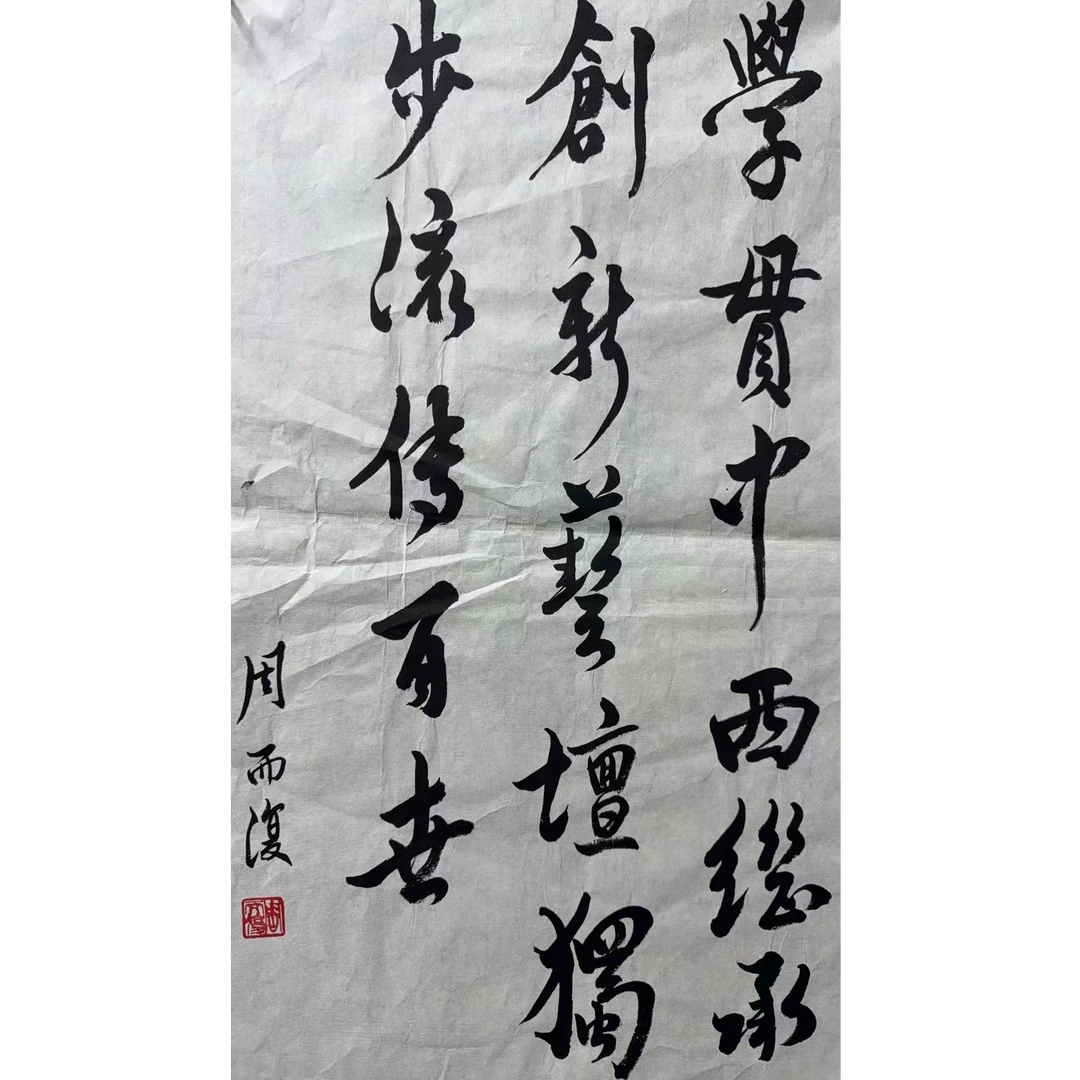 學貫中西繼承
創新藝壇獨
步流傳百世
周而復
周而復